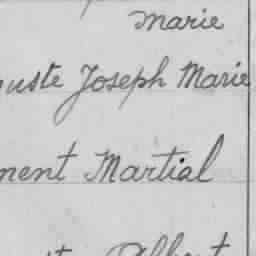 Marie
uste Joseph Marie
ment Martial
Albert